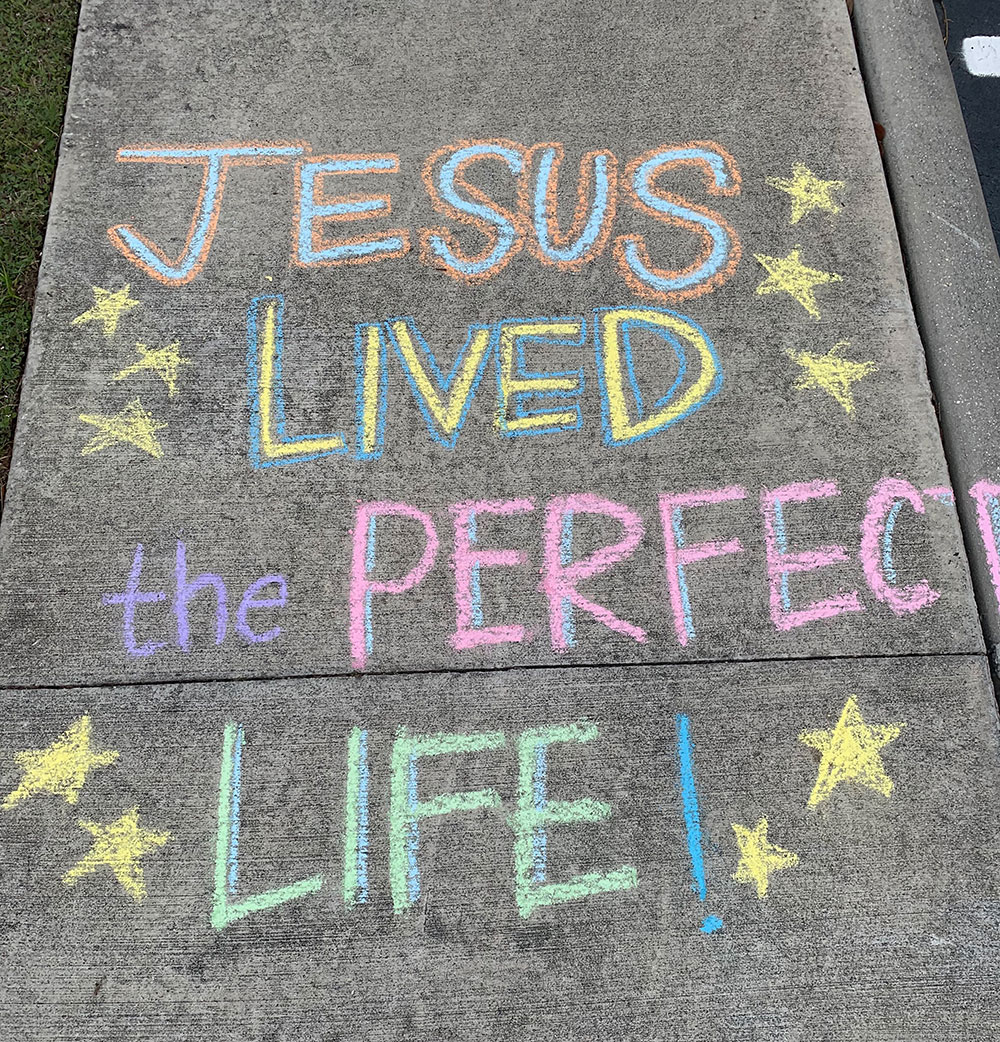 JESUS
LIVED
the PERFECT
LIFE!